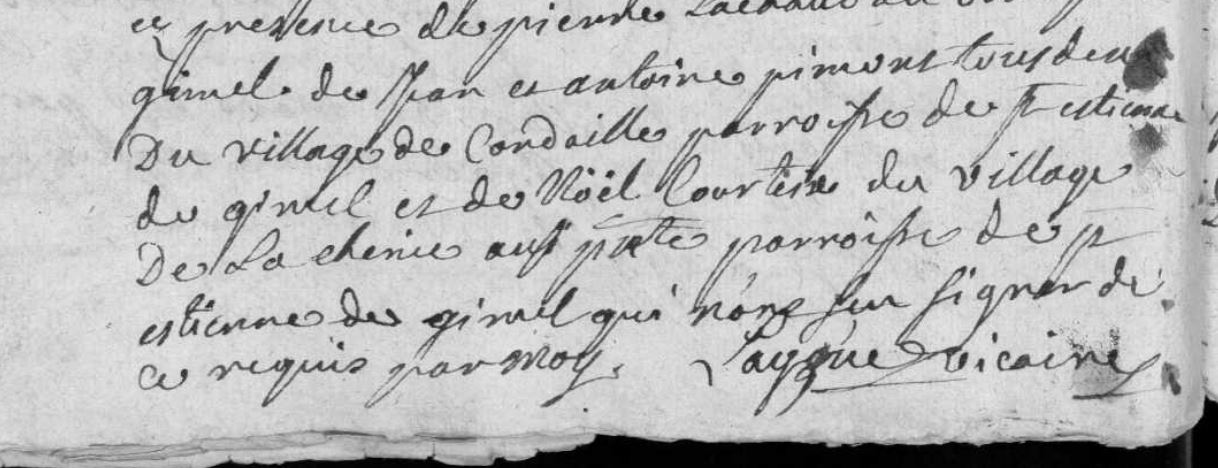 et presence de pierre Lachaud du
gimel de Jean et antoine pimont tous deux
Du village de Condaille parroisse de st estienne
de gimel et de Nöël Courteix du village
De La chenie aussi pnte parroisse de st
estienne de gimel qui n'ont seu signer de
ce requis par moy. Laygue vicaire